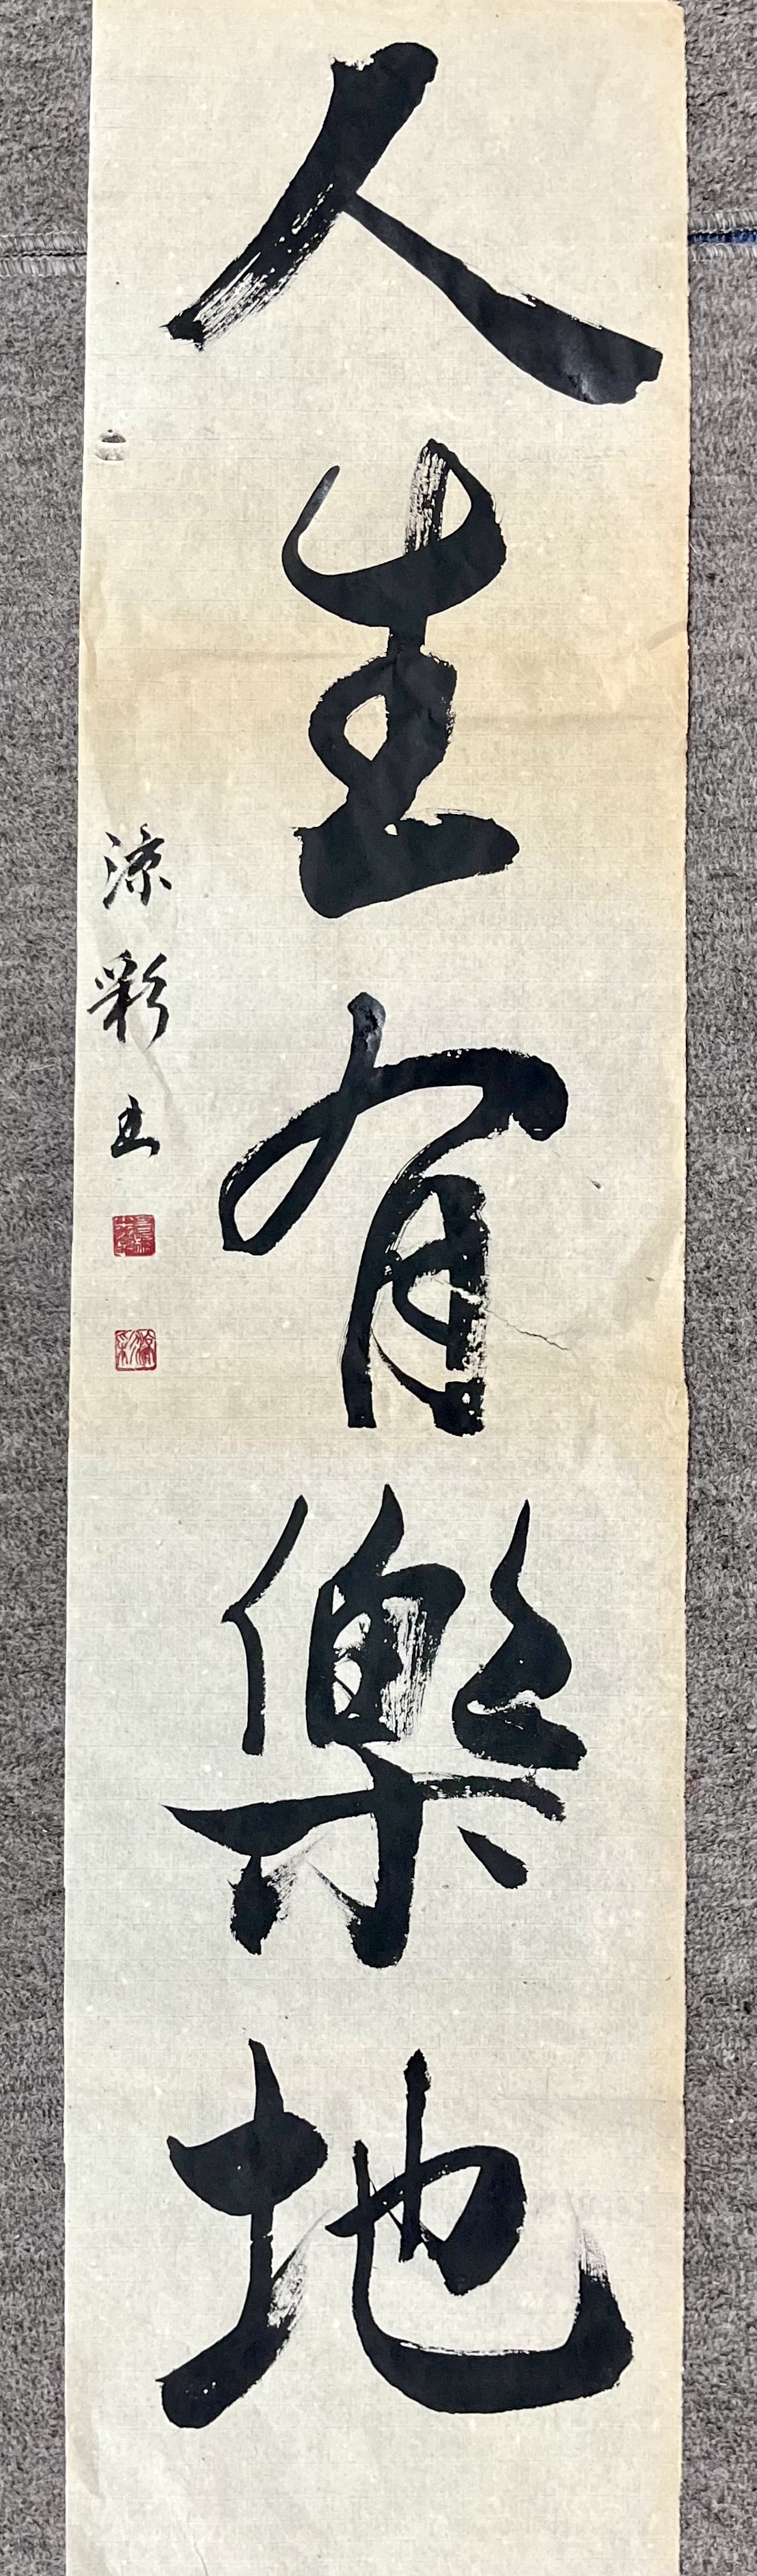 人生有樂地
涼彩書